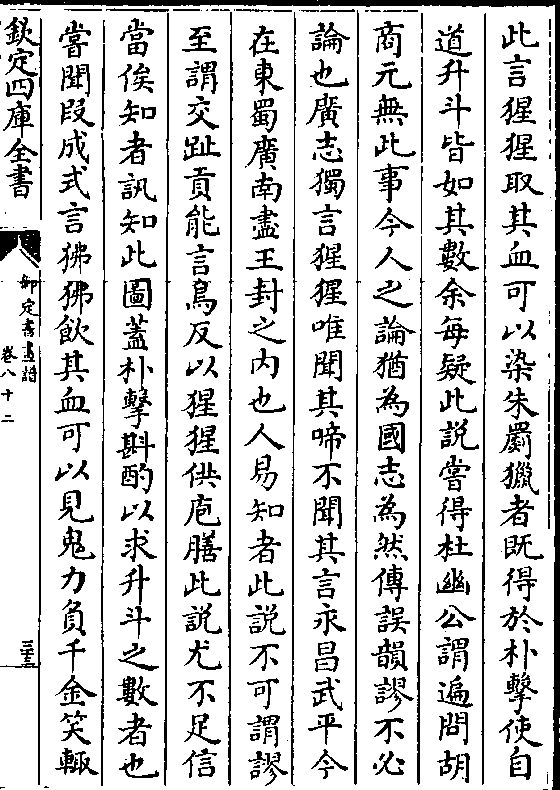 此言猩猩取其血可以染朱罽獵者既得於朴擊使自
道升斗皆如其數余每疑此說嘗得杜豳公謂遍問胡
商元無此事今人之論猶為國志為然傳誤韻謬不必
論也廣志獨言猩猩唯聞其啼不聞其言永昌武平今
在東蜀廣南盡王封之内也人易知者此說不可謂謬
至謂交趾貢能言鳥反以猩猩供庖膳此說尤不足信
當俟知者訊知此圖蓋朴擊斟酌以求升斗之數者也
嘗聞段成式言狒狒飲其血可以見鬼力負千金笑輙
欽定四庫全書
御定書畫譜
卷八十二
三十三